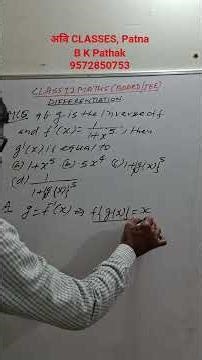 अवि CLASSES, Patna
B K Pathak
9572850753
CLASS 12 MATHS (BOARD/JEE)
DIFFERENTIATION
If g is the inverse of f
and f'(x) = 1/(1+x⁵), then
g'(x) is equal to
(a) 1+x⁵ (b) 5x⁴ (c) 1+{g(x)}⁵
(d) 1/(1+{g(x)}⁵)
g = f⁻¹(x) ⇒ f{g(x)} = x